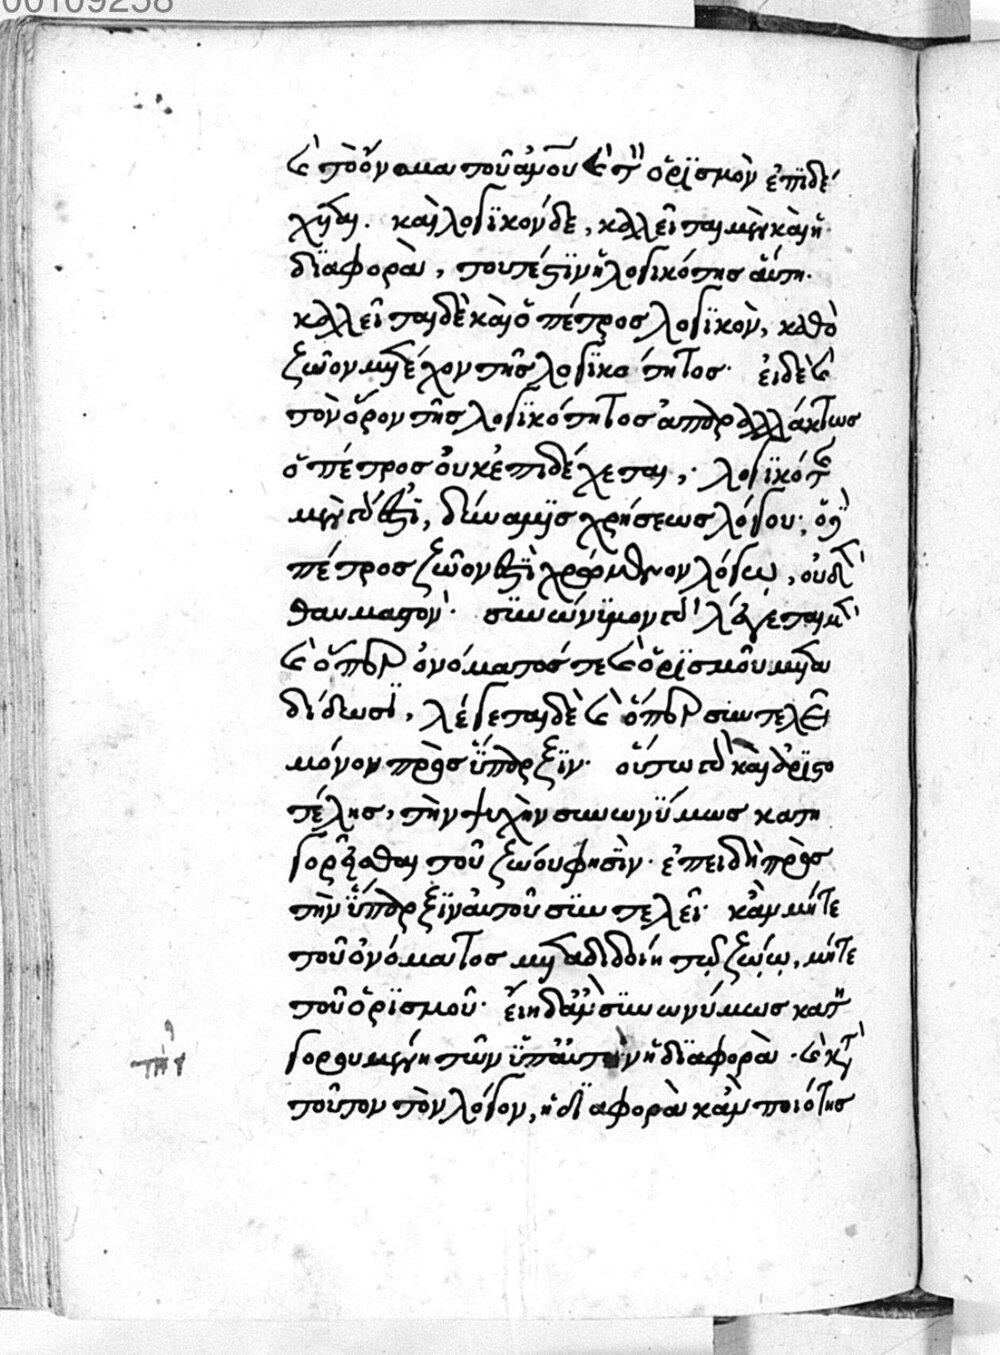 00109258
καὶ τὸ ὄνομα τοῦ ἀμοῦ καὶ τὸν ὁρισμὸν ἐπιδέ
χηται. καὶ λογικὸν δὲ, καλεῖται μὲν καὶ ἡ
διαφορὰ, τουτέστιν ἡ λογικότης αὕτη.
καλεῖται δὲ καὶ ὁ πέτρος λογικὸν, καθὸ
ζῶον μετέχον τῆς λογικότητος. εἰ δὲ καὶ
τὸν ὅρον τῆς λογικότητος ἀπαραλλάκτως
ὁ πέτρος οὐκ ἐπιδέχεται, λογικότης
μὲν γάρ ἐστι, δύναμις χρήσεως λόγου, ὁ δὲ
πέτρος ζῶον ἐστὶ χρώμενον λόγω, οὐδὲν
θαυμαστόν. συνώνυμον γὰρ λέγεται μὲν
καὶ ὅπερ ὀνόματός τε καὶ ὁρισμοῦ μετα
δίδωσι, λέγεται δὲ καὶ ὅπερ συντελεῖ
μόνον πρὸς ὕπαρξιν. οὕτω γὰρ καὶ ἀριστο
τέλης, τὴν ψυχὴν συνωνύμως κατη
γορεῖσθαι τοῦ ζώου φησὶν. ἐπειδὴ πρὸς
τὴν ὕπαρξιν αὐτοῦ συντελεῖ. κἂν μήτε
τοῦ ὀνόματος μεταδιδοίη τῷ ζώῳ, μήτε
τοῦ ὁρισμοῦ. εἴη δ' ἂν συνωνύμως κατη
γορουμένη τῶν ὑπ' αὐτὴν ἡ διαφορὰ. καὶ κατὰ
τοῦτον τὸν λόγον, ἡ διαφορὰ κἂν ποιότης